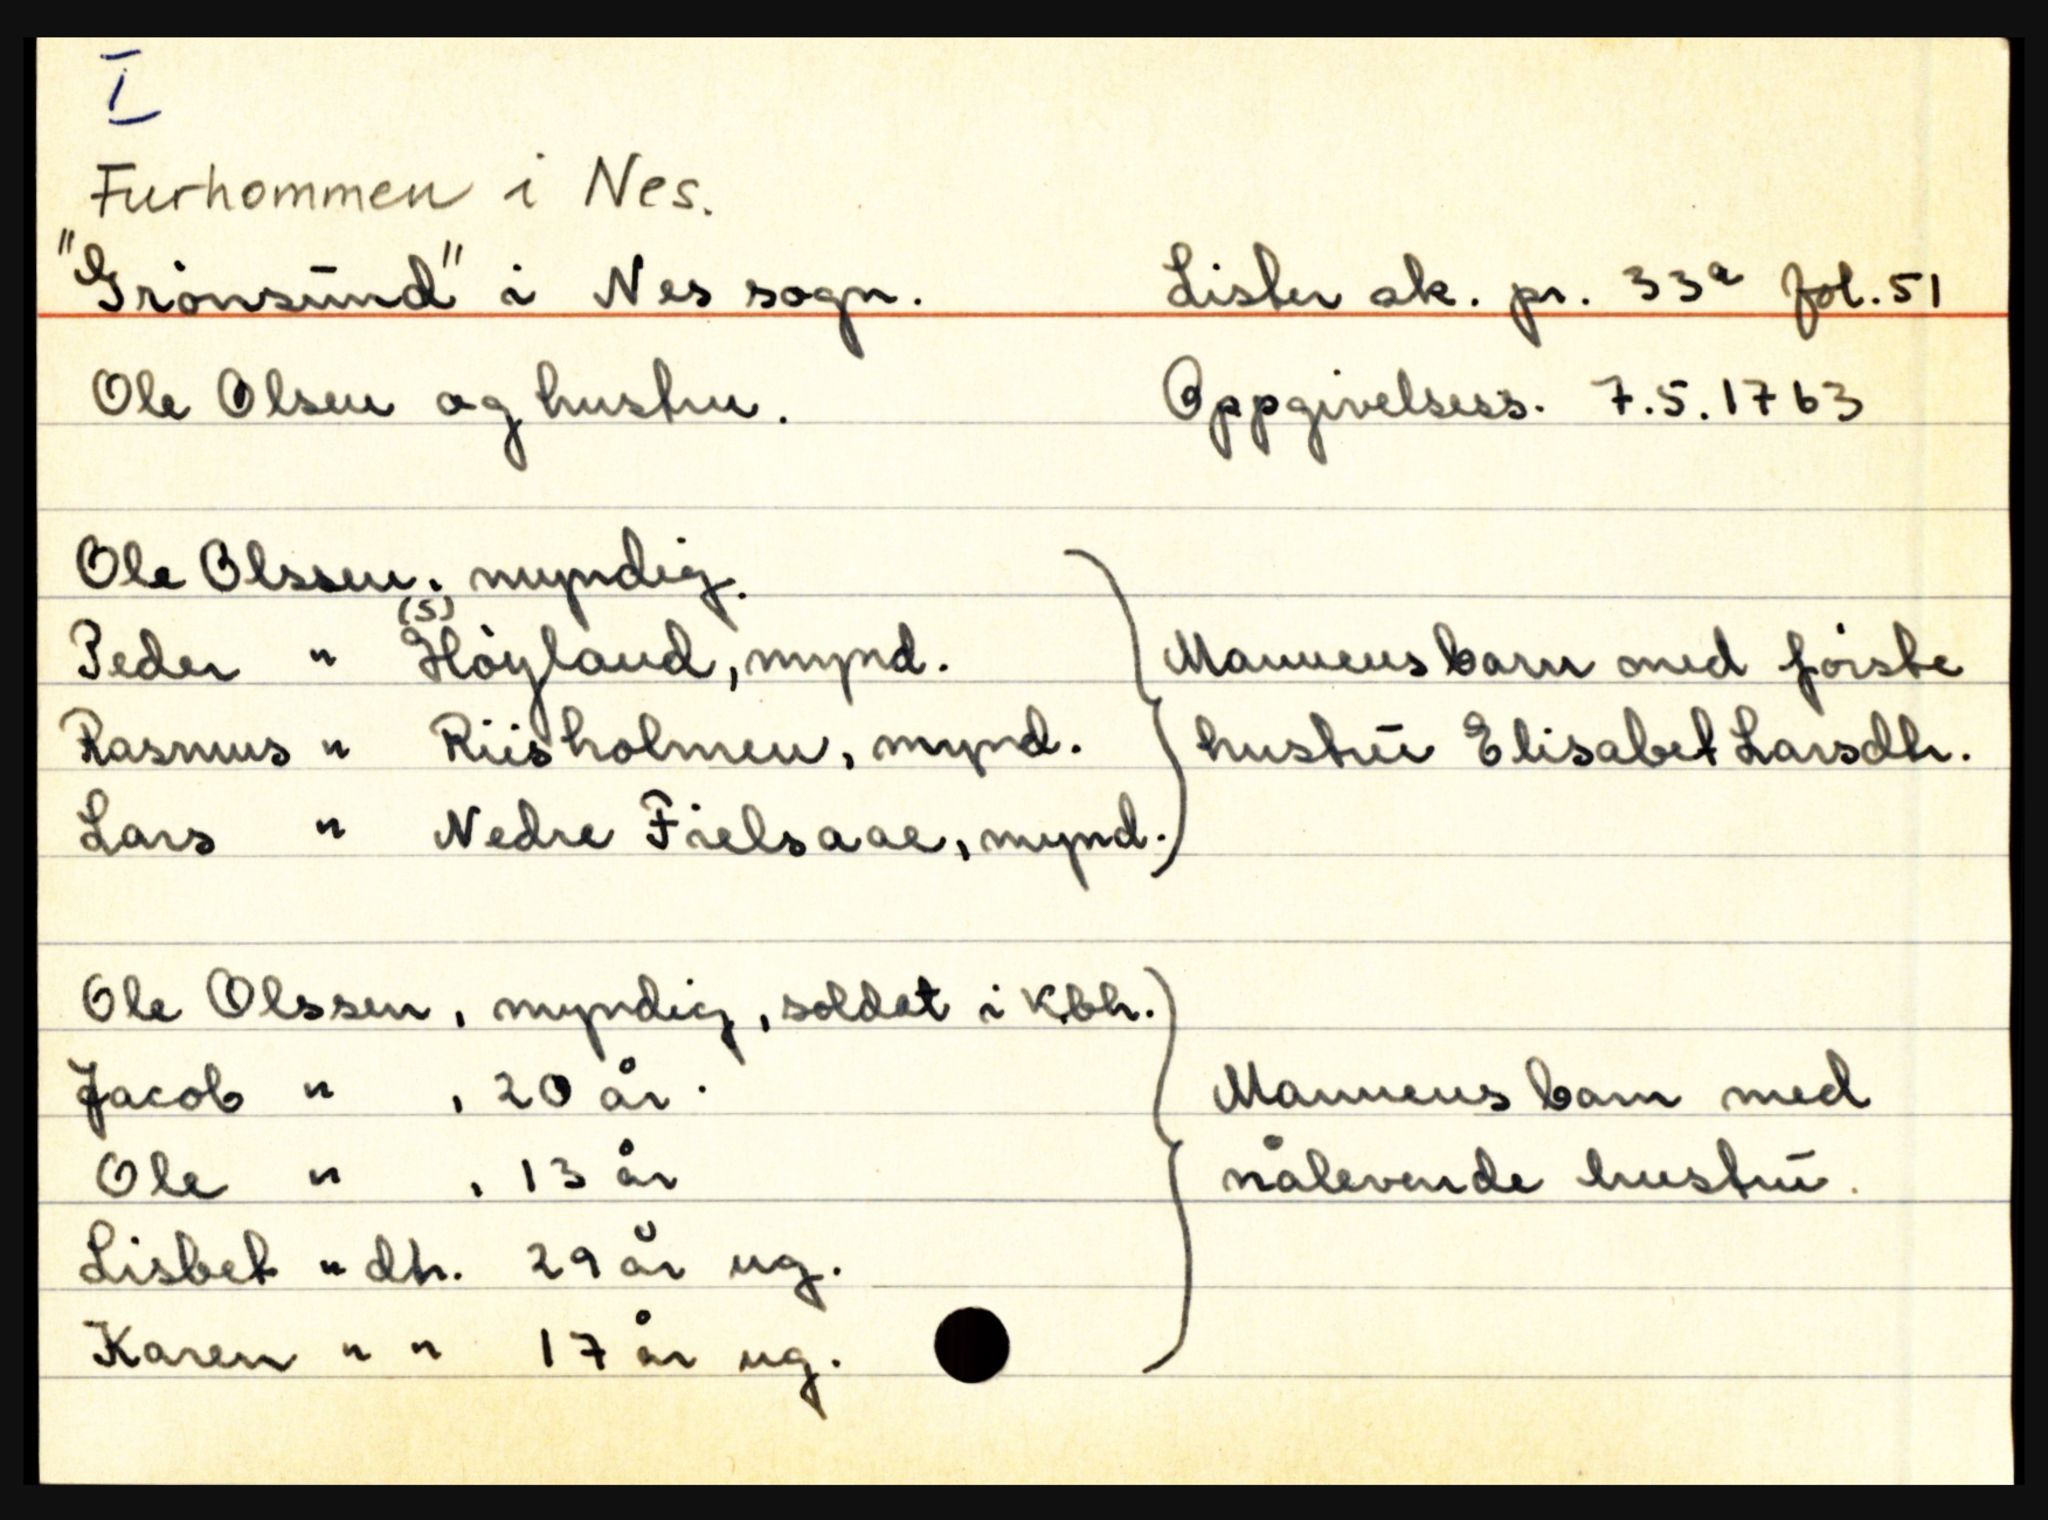 I
Furhommen i Nes.
"Grönsund" i Nes sogn. Lister sk. pr. 33a fol. 51
Ole Olsen og hustru. Oppgivelsess. 7.5.1763
Ole Olssen, myndig.
(S)
Peder " Höyland, mynd. Mannens barn med förste
Rasmus " Riisholmen, mynd. hustru Elisabet Larsdtr.
Lars " Nedre Fielsaae, mynd.
Ole Olssen, myndig, soldat i Kbh.
Jacob " , 20 år. Mannens barn med
Ole " , 13 år nålevende hustru.
Lisbet " dtr. 29 år ug.
Karen " " 17 år ug.